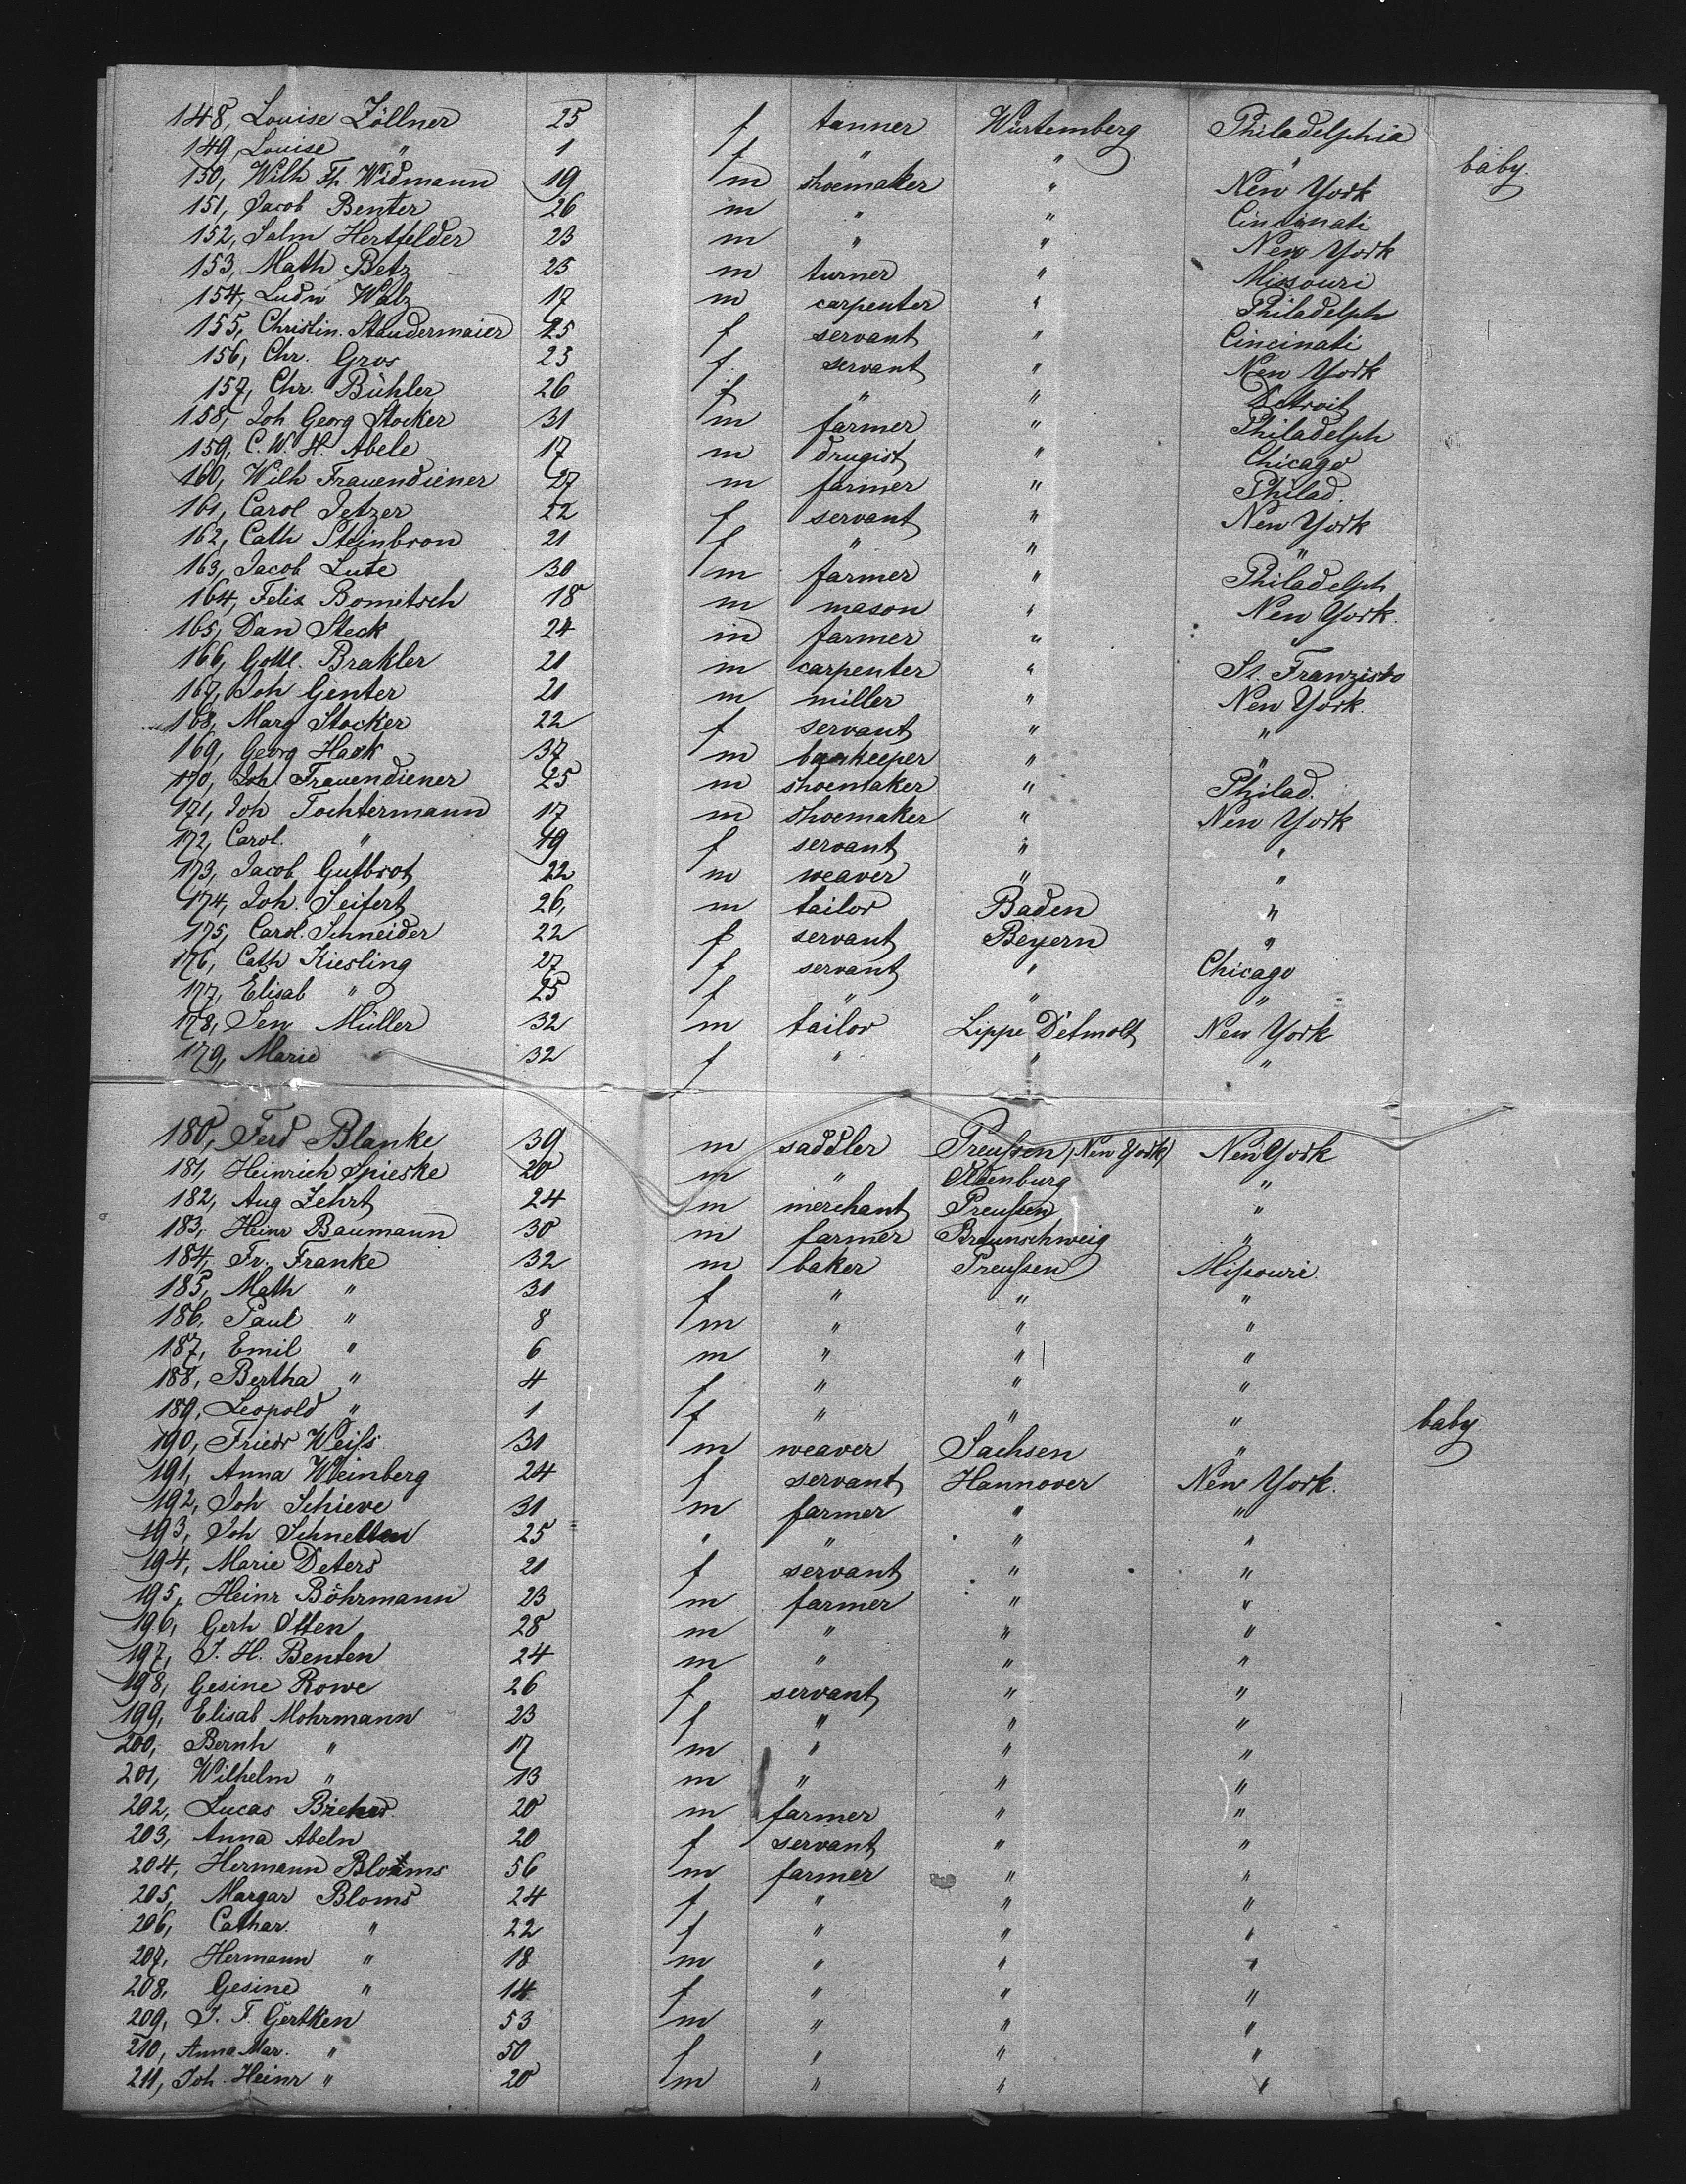 148, Louise Zöllner 25 f tanner Würtemberg Philadelphia
149, Louise " 1 f " " " baby.
150, Wilh Fr Widmann 19 m shoemaker " New York
151, Jacob Benter 26 m " " Cincinati
152, Salm Hertfelder 23 m " " New York
153, Math Betz 25 m turner " Missouri
154, Ludw Walz 17 m carpenter " Philadelph
155, Christin. Staudermaier 25 f servant " Cincinati
156, Chr. Gros 23 f. servant " New York
157, Chr. Bühler 26 f " " Detroit
158, Joh Georg Stocker 31 m farmer " Philadelph
159, C. W. H. Abele 17 m drugist " Chicago
160, Wilh Frauendiener 27 m farmer " Philad.
161, Carol Jetzer 22 f servant " New York
162, Cath Steinbron 21 f " " "
163, Jacob Lute 30 m farmer " Philadelph
164, Felix Bomitsch 18 m mason " New York.
165, Dan Steck 24 m farmer "
166, Gottl. Brakler 21 m carpenter " St. Franzisko
167, Joh Genter 21 m miller " New York.
168, Marg Stocker 22 f servant " "
169, Georg Hack 37 m barkeeper " "
170, Joh. Frauendiener 25 m shoemaker " Philad.
171, Joh Tochtermann 17 m shoemaker " New York
172, Carol. " 19 f servant " "
173, Jacob Gutbrot 22 m weaver " "
174, Joh. Seifert 26, m tailor Baden "
175, Carol. Schneider 22 f servant Beyern "
176, Cath Kiesling 27 f servant " Chicago
177, Elisab " 25 f " " "
178, Sen Müller 32 m tailor Lippe Detmolt New York
179, Marie 32 f " " "
180, Ferd Blanke 39 m saddler Preußen (New York) New York
181, Heinrich Spieske 20 m " Oldenburg "
182, Aug Zehrt 24 m merchant Preußen "
183, Heinr Baumann 30 m farmer Braunschweig "
184, Fr. Franke 32 m baker Preußen Mißouri.
185, Math " 31 f " " "
186, Paul " 8 m " " "
187, Emil " 6 m " " "
188, Bertha " 4 f " " "
189, Leopold " 1 f " " " baby
190, Friedr Weiß 31 m weaver Sachsen "
191, Anna Weinberg 24 f servant Hannover New York.
192, Joh Schieve 31 m farmer " "
193, Joh Schnelten 25 " " " "
194, Marie Deters 21 f servant " "
195, Heinr Böhrmann 23 m farmer " "
196, Gerh Otten 28 m " " "
197, J. H. Benten 24 m " " "
198, Gesine Rowe 26 f servant " "
199, Elisab Mohrmann 23 f " " "
200, Bernh " 17 m " " "
201, Wilhelm " 13 m " " "
202, Lucas 20 m farmer " "
203, Anna Abeln 20 f servant " "
204, Hermann Bloms 56 m farmer " "
205, Margar Bloms 24 f " " "
206, Cathar. " 22 f " " "
207, Hermann " 18 m " " "
208, Gesine " 14 f " " "
209, J. F. Gertken 53 m " " "
210, Anna Mar. " 50 f " " "
211, Joh. Heinr " 20 m " " "